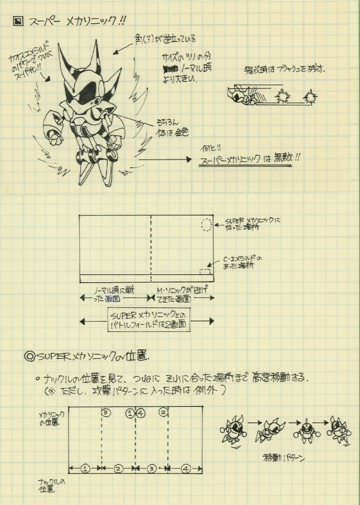 スーパー メカソニック!!
角(ツノ)が逆立っている
カオスエメラルド
のパワーで
スーパー化!!
サイズは ツノの分
ノーマル時
より大きい.
もちろん
体は金色
何と!!
スーパーメカソニックは無敵!!
SUPER メカソニックに
なった場所
C・エメラルドの
あった場所
ノーマル時に戦
った画面
M・ソニックが逃げ
てきた画面
SUPERメカソニックとの
バトルフィールドは2画面
◎SUPERメカソニックの位置.
○ナックルの位置を見て、つねに それに合った場所まで 高速移動する.
(※ ただし、攻撃パターンに入った時は例外)
メカソニック
の位置
③ ①④ ②
① ② ③ ④
ナックルの
位置
移動パターン